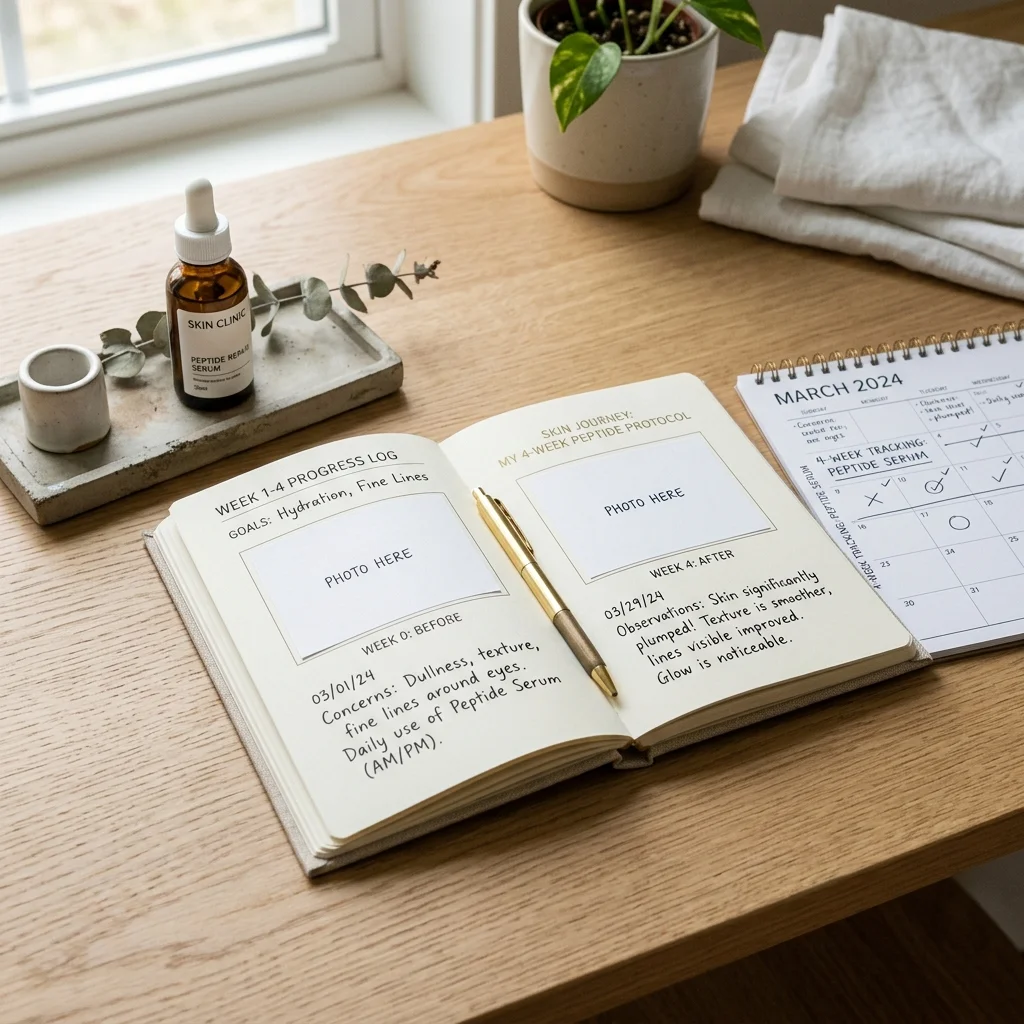 SKIN CLINIC
PEPTIDE REPAIR
SERUM
WEEK 1-4 PROGRESS LOG
GOALS: Hydration, Fine Lines
PHOTO HERE
WEEK 0: BEFORE
03/01/24
Concerns: Dullness, texture,
fine lines around eyes.
Daily use of Peptide Serum
(AM/PM).
SKIN JOURNEY:
MY 4-WEEK PEPTIDE PROTOCOL
PHOTO HERE
WEEK 4: AFTER
03/29/24
Observations: Skin significantly
plumped! Texture is smoother,
lines visible improved.
Glow is noticeable.
MARCH 2024
plumped!
4-WEEK TRACKING:
PEPTIDE SERUM
4 5
9 10 11
16 17 18
23 34 25
30 31